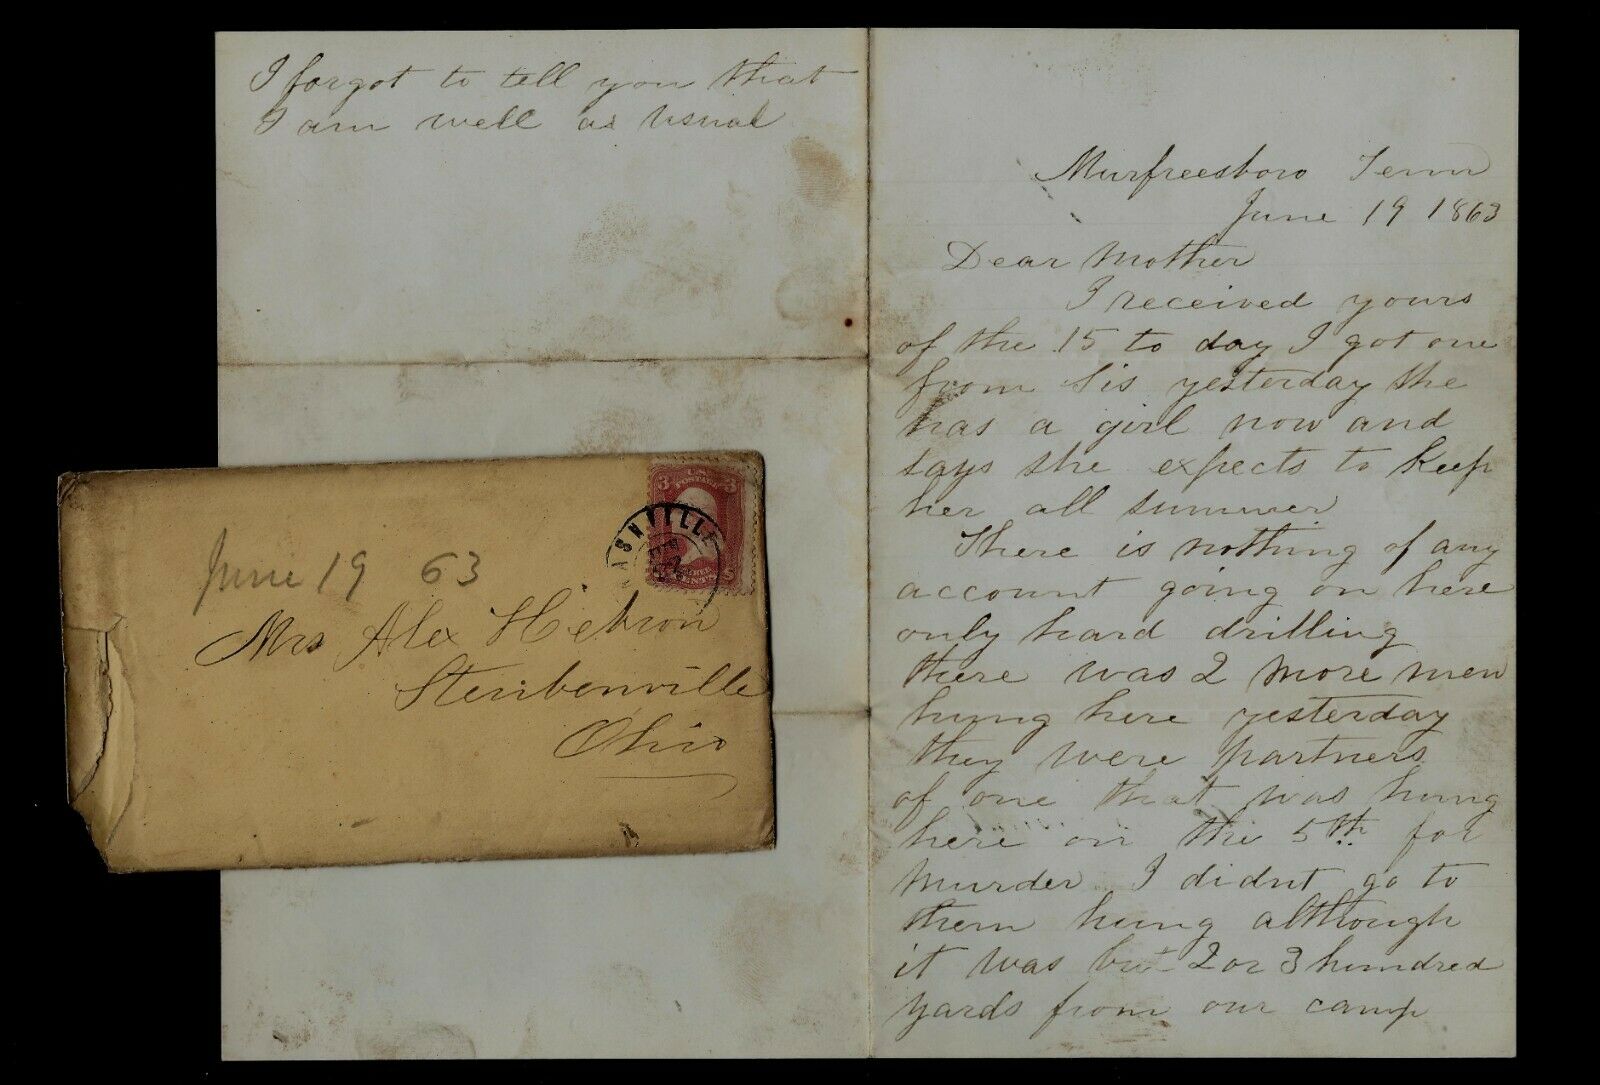 I forgot to tell you that
I am well as usual
Murfreesboro Tenn
June 19 1863
Dear Mother
I received yours
of the 15 to day I got one
from Sis yesterday she
has a girl now and
says she expects to keep
her all summer
There is nothing of any
account going on here
only hard drilling
there was 2 more men
hung here yesterday
they were partners
of one that was hung
here on the 5th for
murder I didnt go to
them hung although
it was but 2 or 3 hundred
yards from our camp
June 19 63
Mrs Alex
Steubenville
Ohio
3 3
U.S.
POSTAGE
CENTS
NASHVILLE